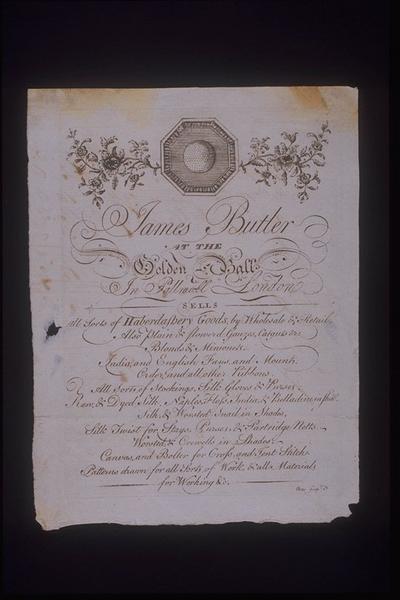 James Butler
AT THE
Golden Ball
In Pallmall London
SELLS
all Sorts of Haberdashery Goods, by Wholesale & Retail,
Also Plain & flower'd Gauzes, &c.
Blonds & Minionets.
India, and English Fans, and Mounts,
Order, and all other Ribbons.
All Sorts of Stockings, Silk Gloves & Purses.
Raw, & Dyed Silk, Naples, Floss, India, & Balladine,
Silk, & Worsted Snail in Shades,
Silk Twist for Stays, Purses, & Partridge Netts.
Worsteds, & Crewells in Shades.
Canvas, and Bolter for Cross, and Tent Stitch.
Patterns drawn for all Sorts of Work, & all Materials
for Working &c.